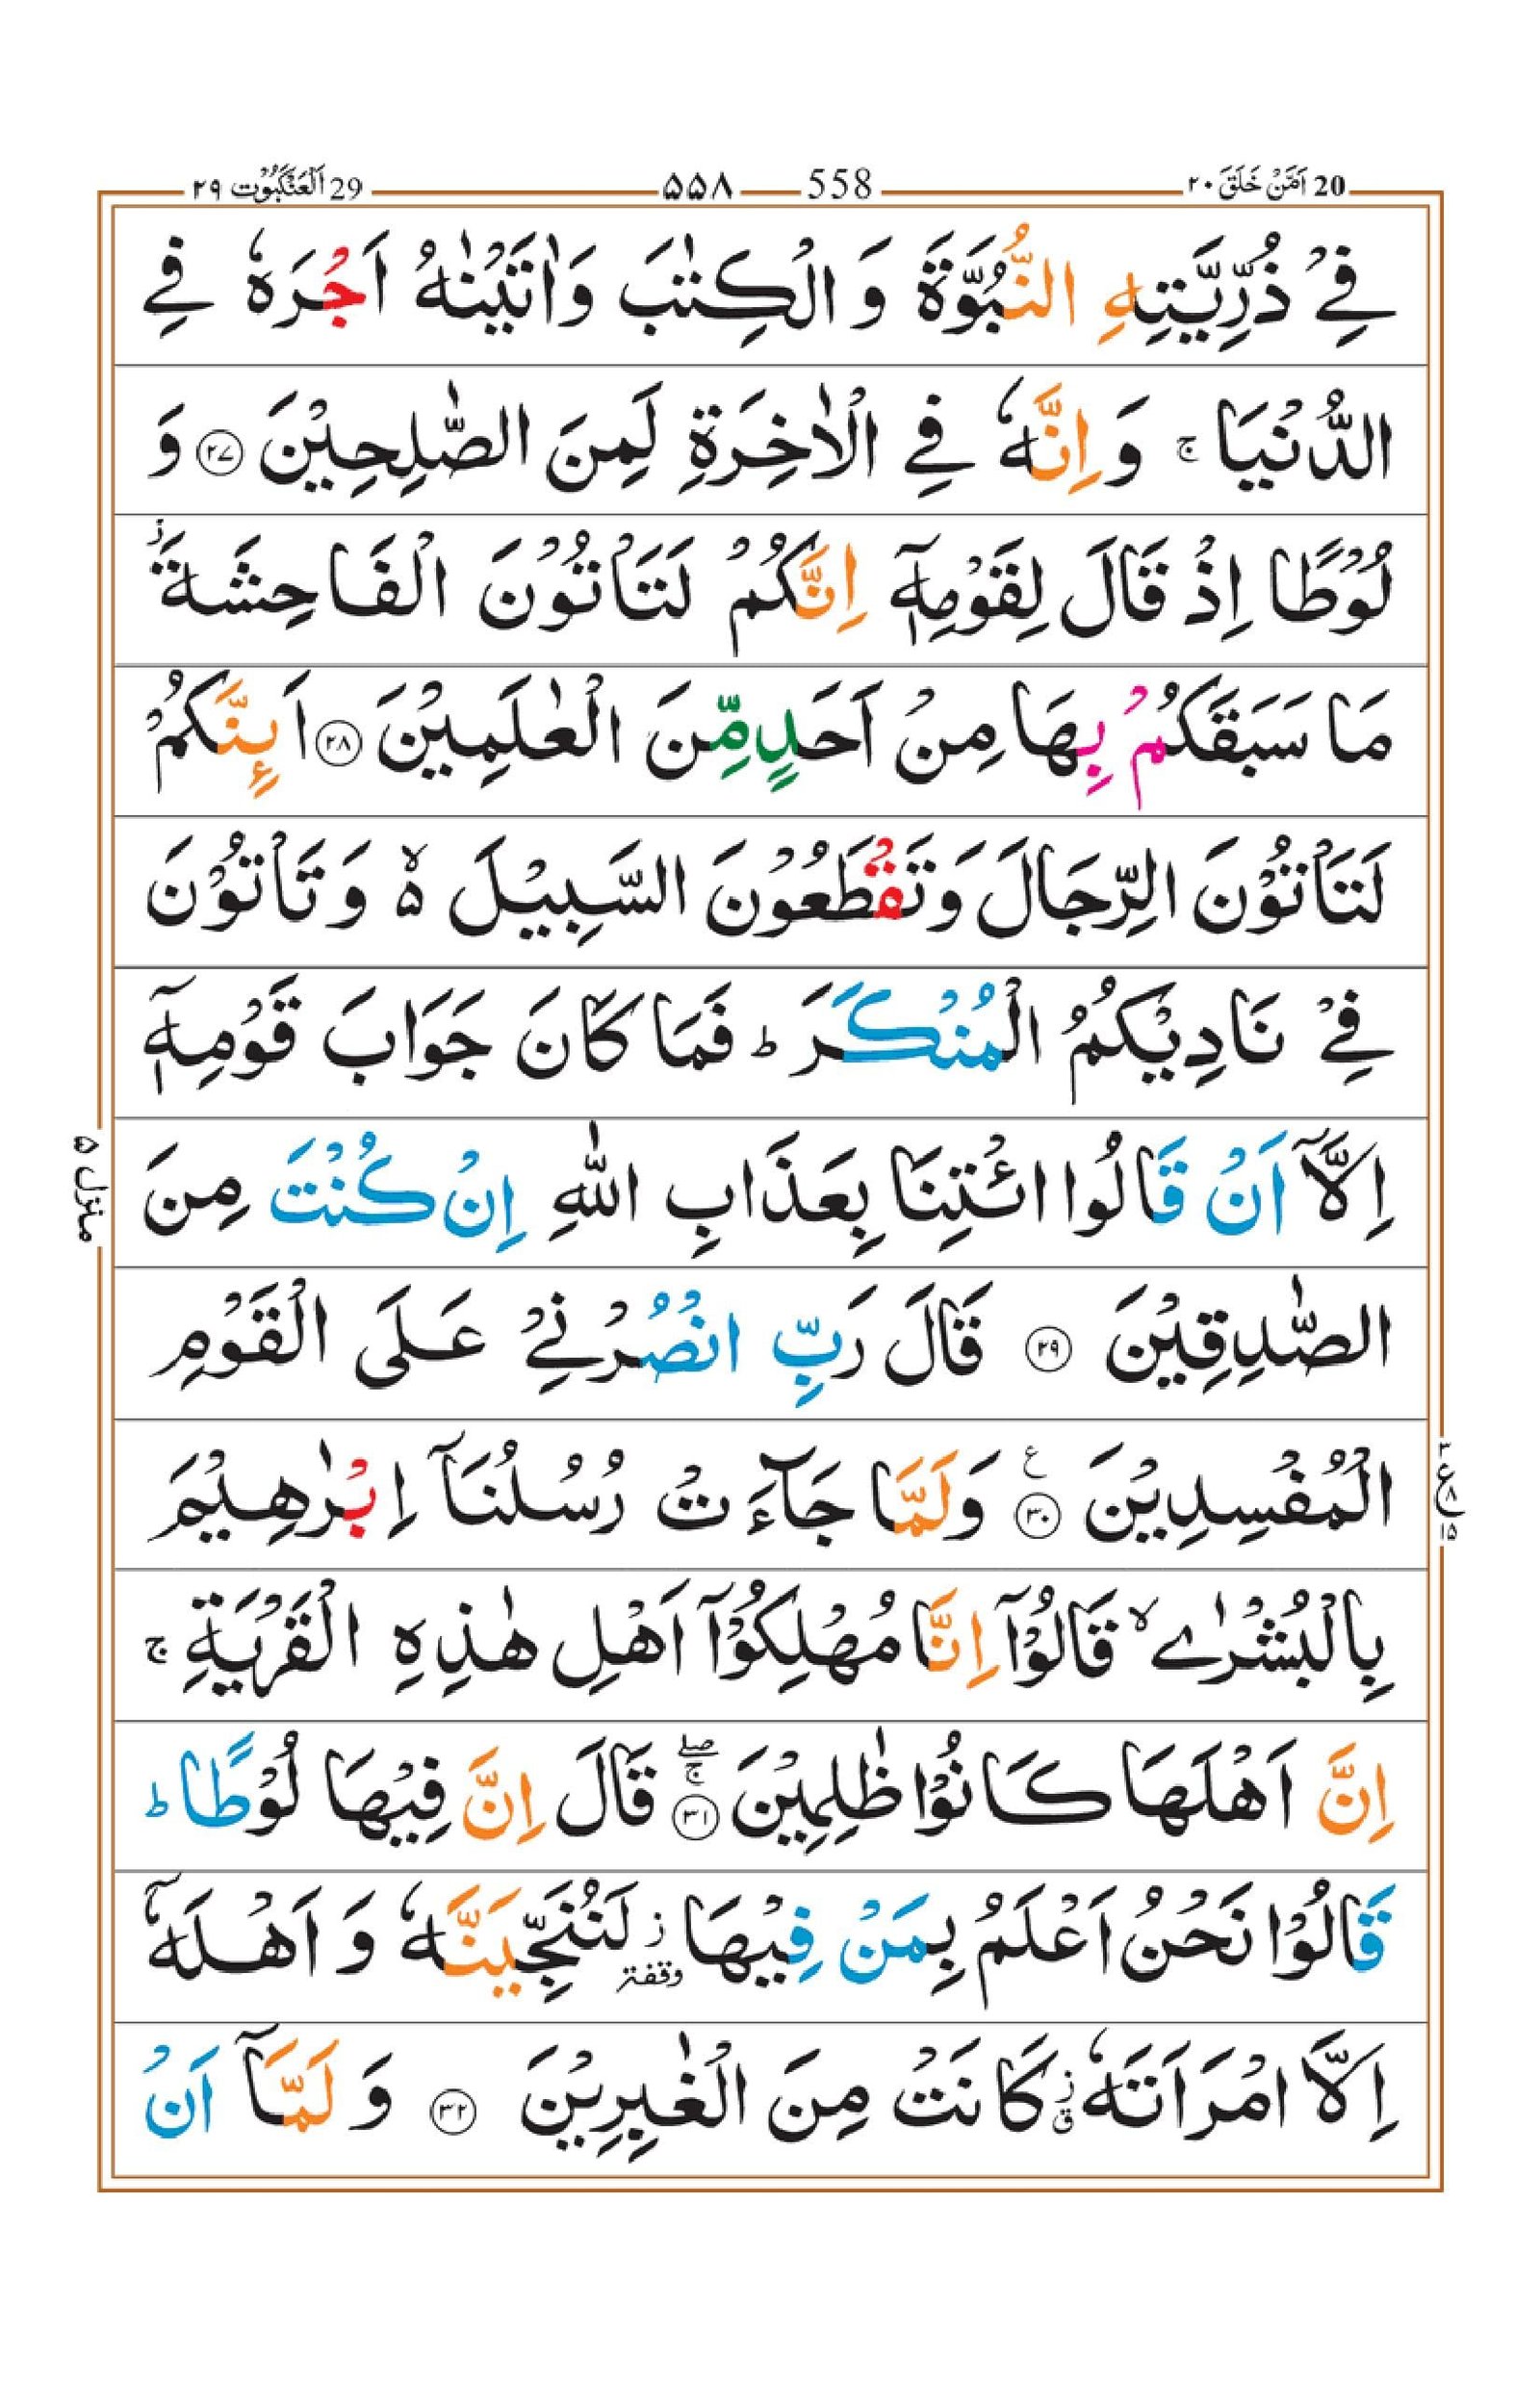 20 اَمَّنْ خَلَقَ ٢٠ 558 ۵۵۸ 29 اَلْعَنْكَبُوْت ٢٩
فِیْ ذُرِّیَّتِهِ النُّبُوَّةَ وَ الْكِتٰبَ وَاٰتَیْنٰهُ اَجْرَهٗ فِی
الدُّنْیَا ۚ وَ اِنَّهٗ فِی الْاٰخِرَةِ لَمِنَ الصّٰلِحِیْنَ ۝۲۷ وَ
لُوْطًا اِذْ قَالَ لِقَوْمِهٖۤ اِنَّكُمْ لَتَاْتُوْنَ الْفَاحِشَةَ ؗ
مَا سَبَقَكُمْ بِهَا مِنْ اَحَدٍ مِّنَ الْعٰلَمِیْنَ ۝۲۸ اَئِنَّكُمْ
لَتَاْتُوْنَ الرِّجَالَ وَتَقْطَعُوْنَ السَّبِیْلَ ۙ۬ وَ تَاْتُوْنَ
فِیْ نَادِیْكُمُ الْمُنْكَرَ ؕ فَمَا كَانَ جَوَابَ قَوْمِهٖۤ
اِلَّاۤ اَنْ قَالُوا ائْتِنَا بِعَذَابِ اللّٰهِ اِنْ كُنْتَ مِنَ
منزل ۵
الصّٰدِقِیْنَ ۝۲۹ قَالَ رَبِّ انْصُرْنِیْ عَلَی الْقَوْمِ
الْمُفْسِدِیْنَ ۝۳۰ ع وَلَمَّا جَآءَتْ رُسُلُنَاۤ اِبْرٰهِیْمَ
۳ ع ۸ ۱۵
بِالْبُشْرٰی ۙ قَالُوْۤا اِنَّا مُهْلِكُوْۤا اَهْلِ هٰذِهِ الْقَرْیَةِ ۚ
اِنَّ اَهْلَهَا كَانُوْا ظٰلِمِیْنَ ۝۳۱ ۚۖ قَالَ اِنَّ فِیْهَا لُوْطًا ؕ
قَالُوْا نَحْنُ اَعْلَمُ بِمَنْ فِیْهَا ؗ وقفة لَنُنَجِّیَنَّهٗ وَ اَهْلَهٗۤ
اِلَّا امْرَاَتَهٗ ؗۗ كَانَتْ مِنَ الْغٰبِرِیْنَ ۝۳۲ وَ لَمَّاۤ اَنْ